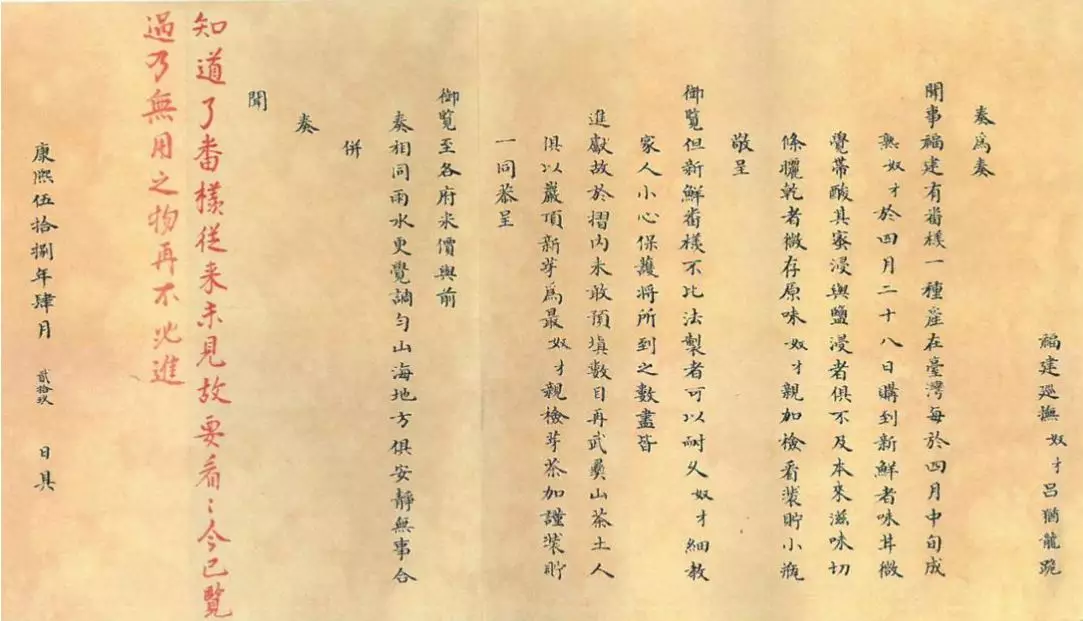 福建巡撫奴才呂猶龍跪
奏爲奏
聞事福建有番樣一種產在臺灣每於四月中旬成
熟奴才於四月二十八日購到新鮮者味甘微
覺帶酸其蜜浸與鹽浸者俱不及本來滋味切
條曬乾者微存原味奴才親加檢看裝貯小瓶
敬呈
御覽但新鮮番樣不比法製者可以耐久奴才細教
家人小心保護將所到之數盡皆
進獻故於摺內未敢預填數目再武彝山茶土人
俱以巖頂新芽爲最奴才親檢芽茶加謹裝貯
一同恭呈
御覽至各府米價與前
奏相同雨水更覺調勻山海地方俱安靜無事合
併
奏
聞
知道了番樣從來未見故要看㆓今已覽
過乃無用之物再不必進
康熙伍拾捌年肆月貳拾玖日具